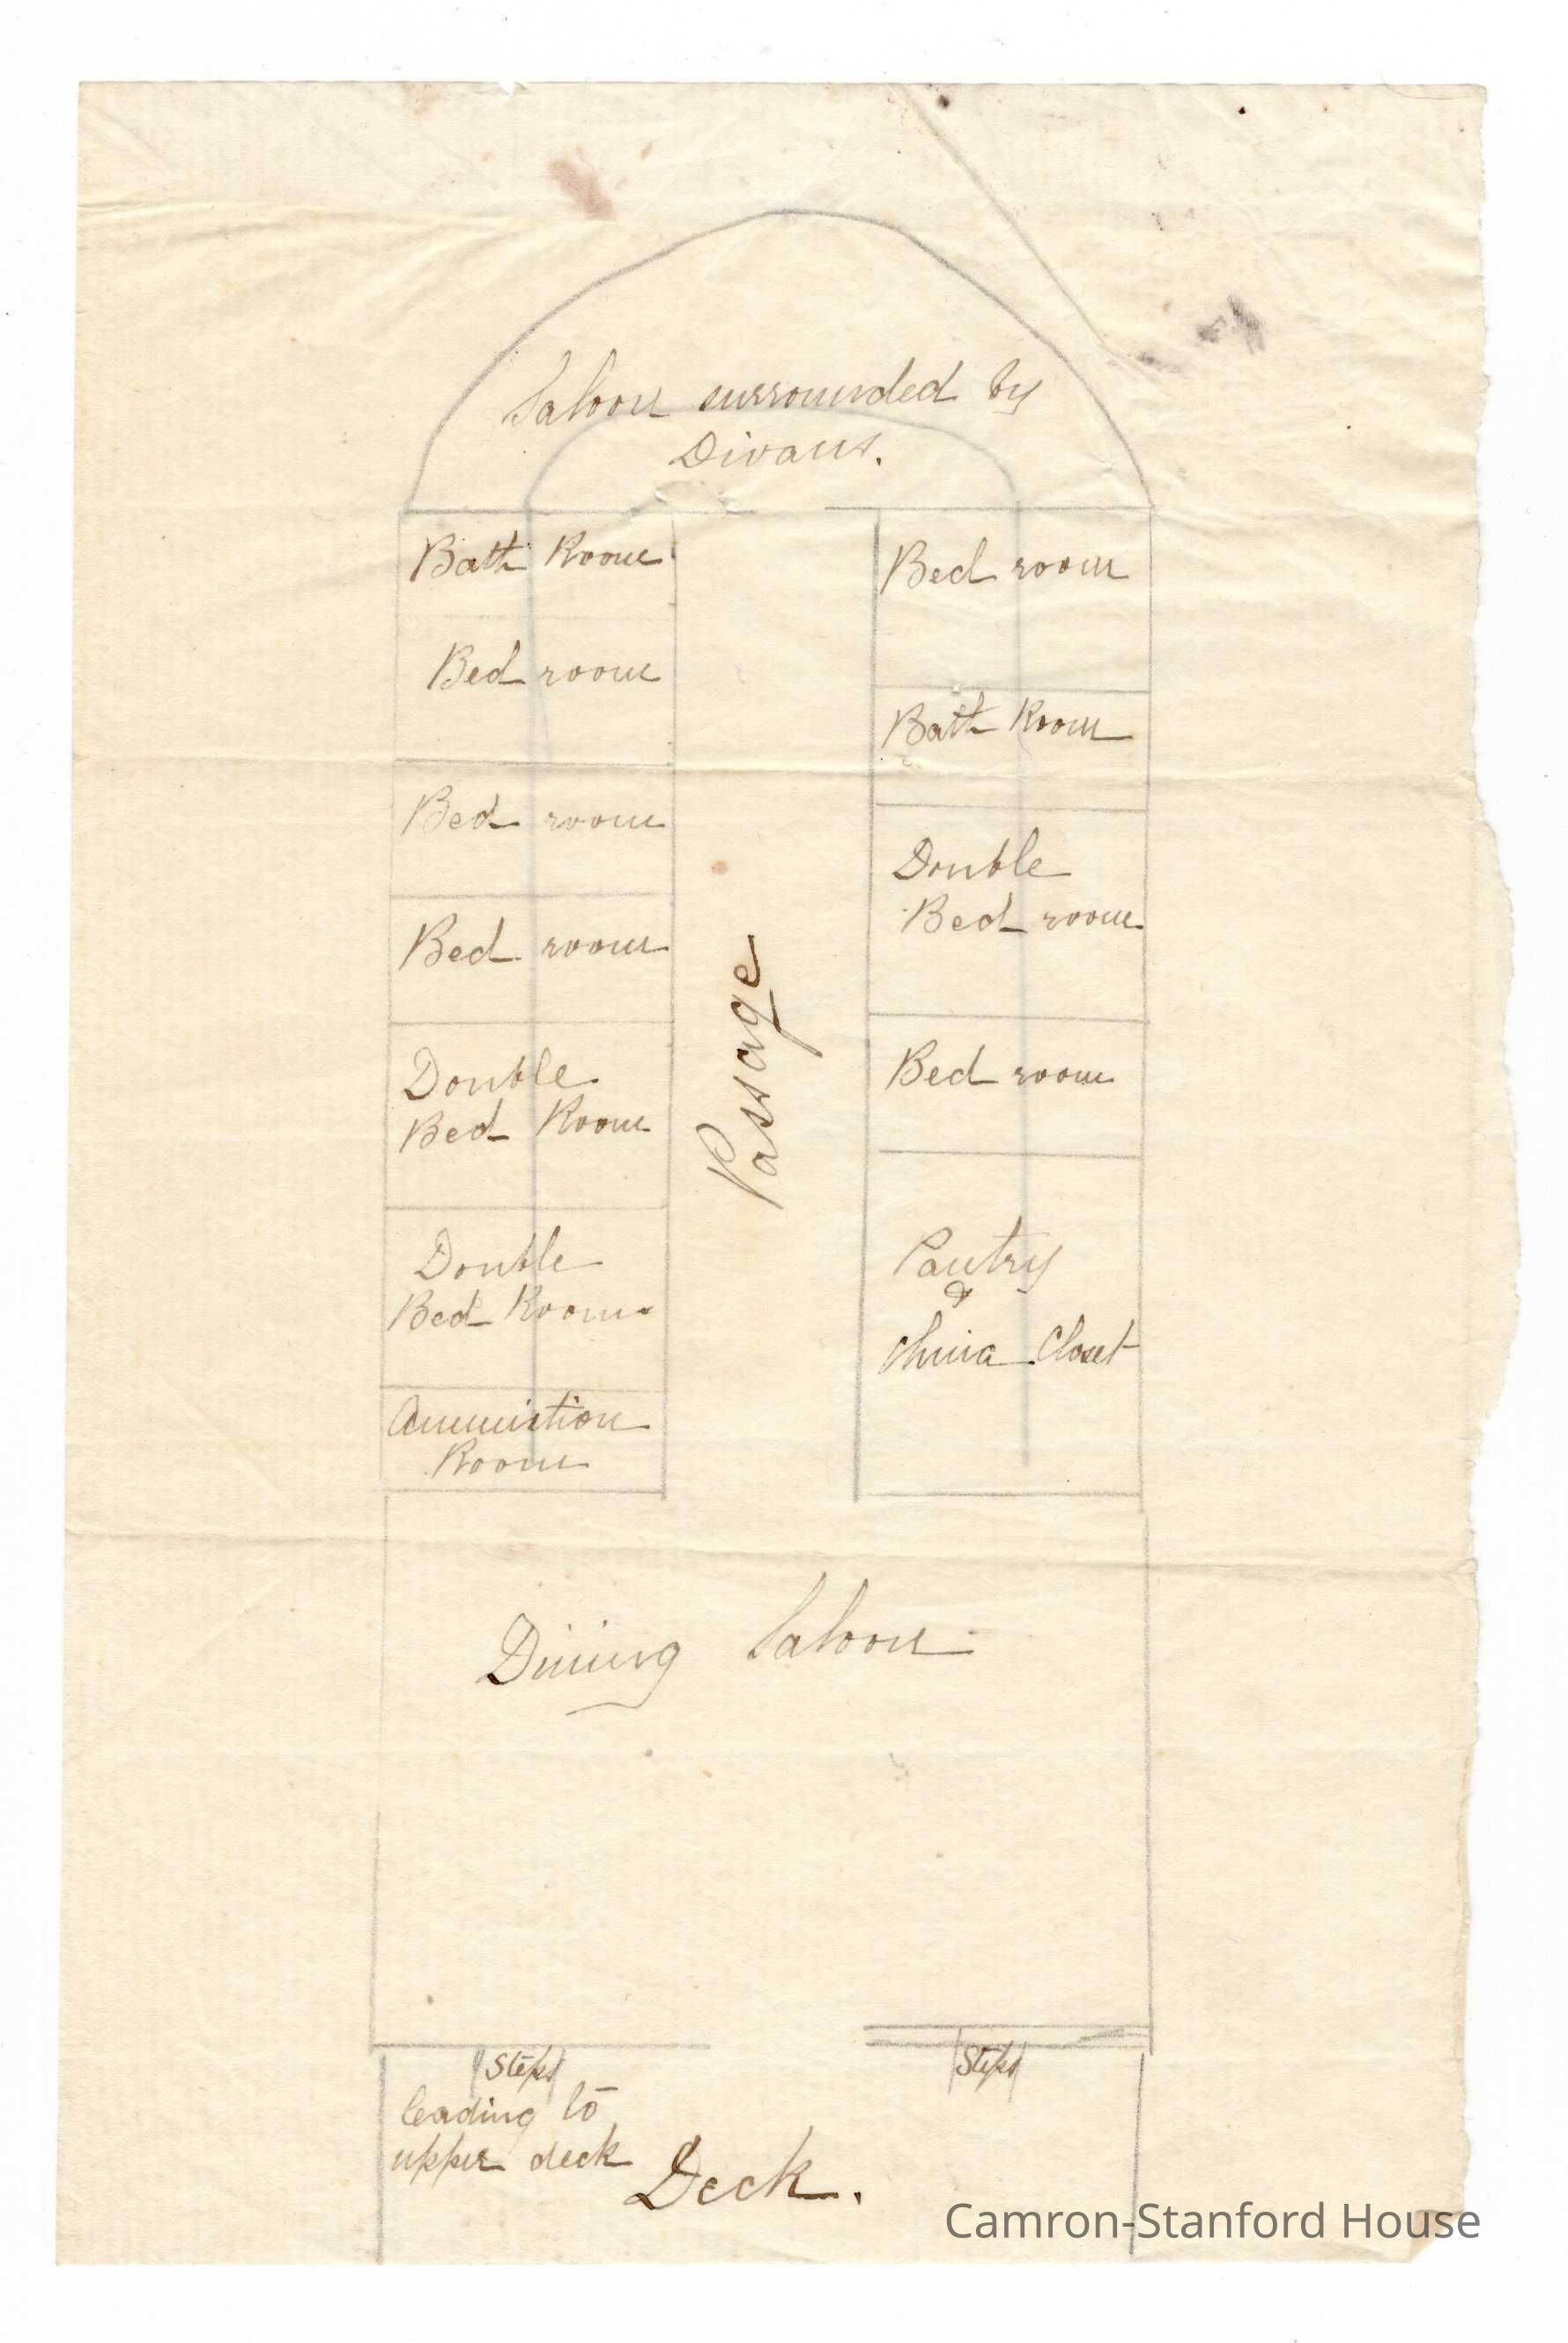 Saloon surrounded by
Divans.
Bath Room
Bed room
Bed room
Bed room
Double
Bed Room
Double
Bed Room
Ammunition
Room
Passage
Bed room
Bath Room
Double
Bed room
Bed room
Pantry
&
China Closet
Dining Saloon
Steps
leading to
upper deck
Steps
Deck.
Camron-Stanford House